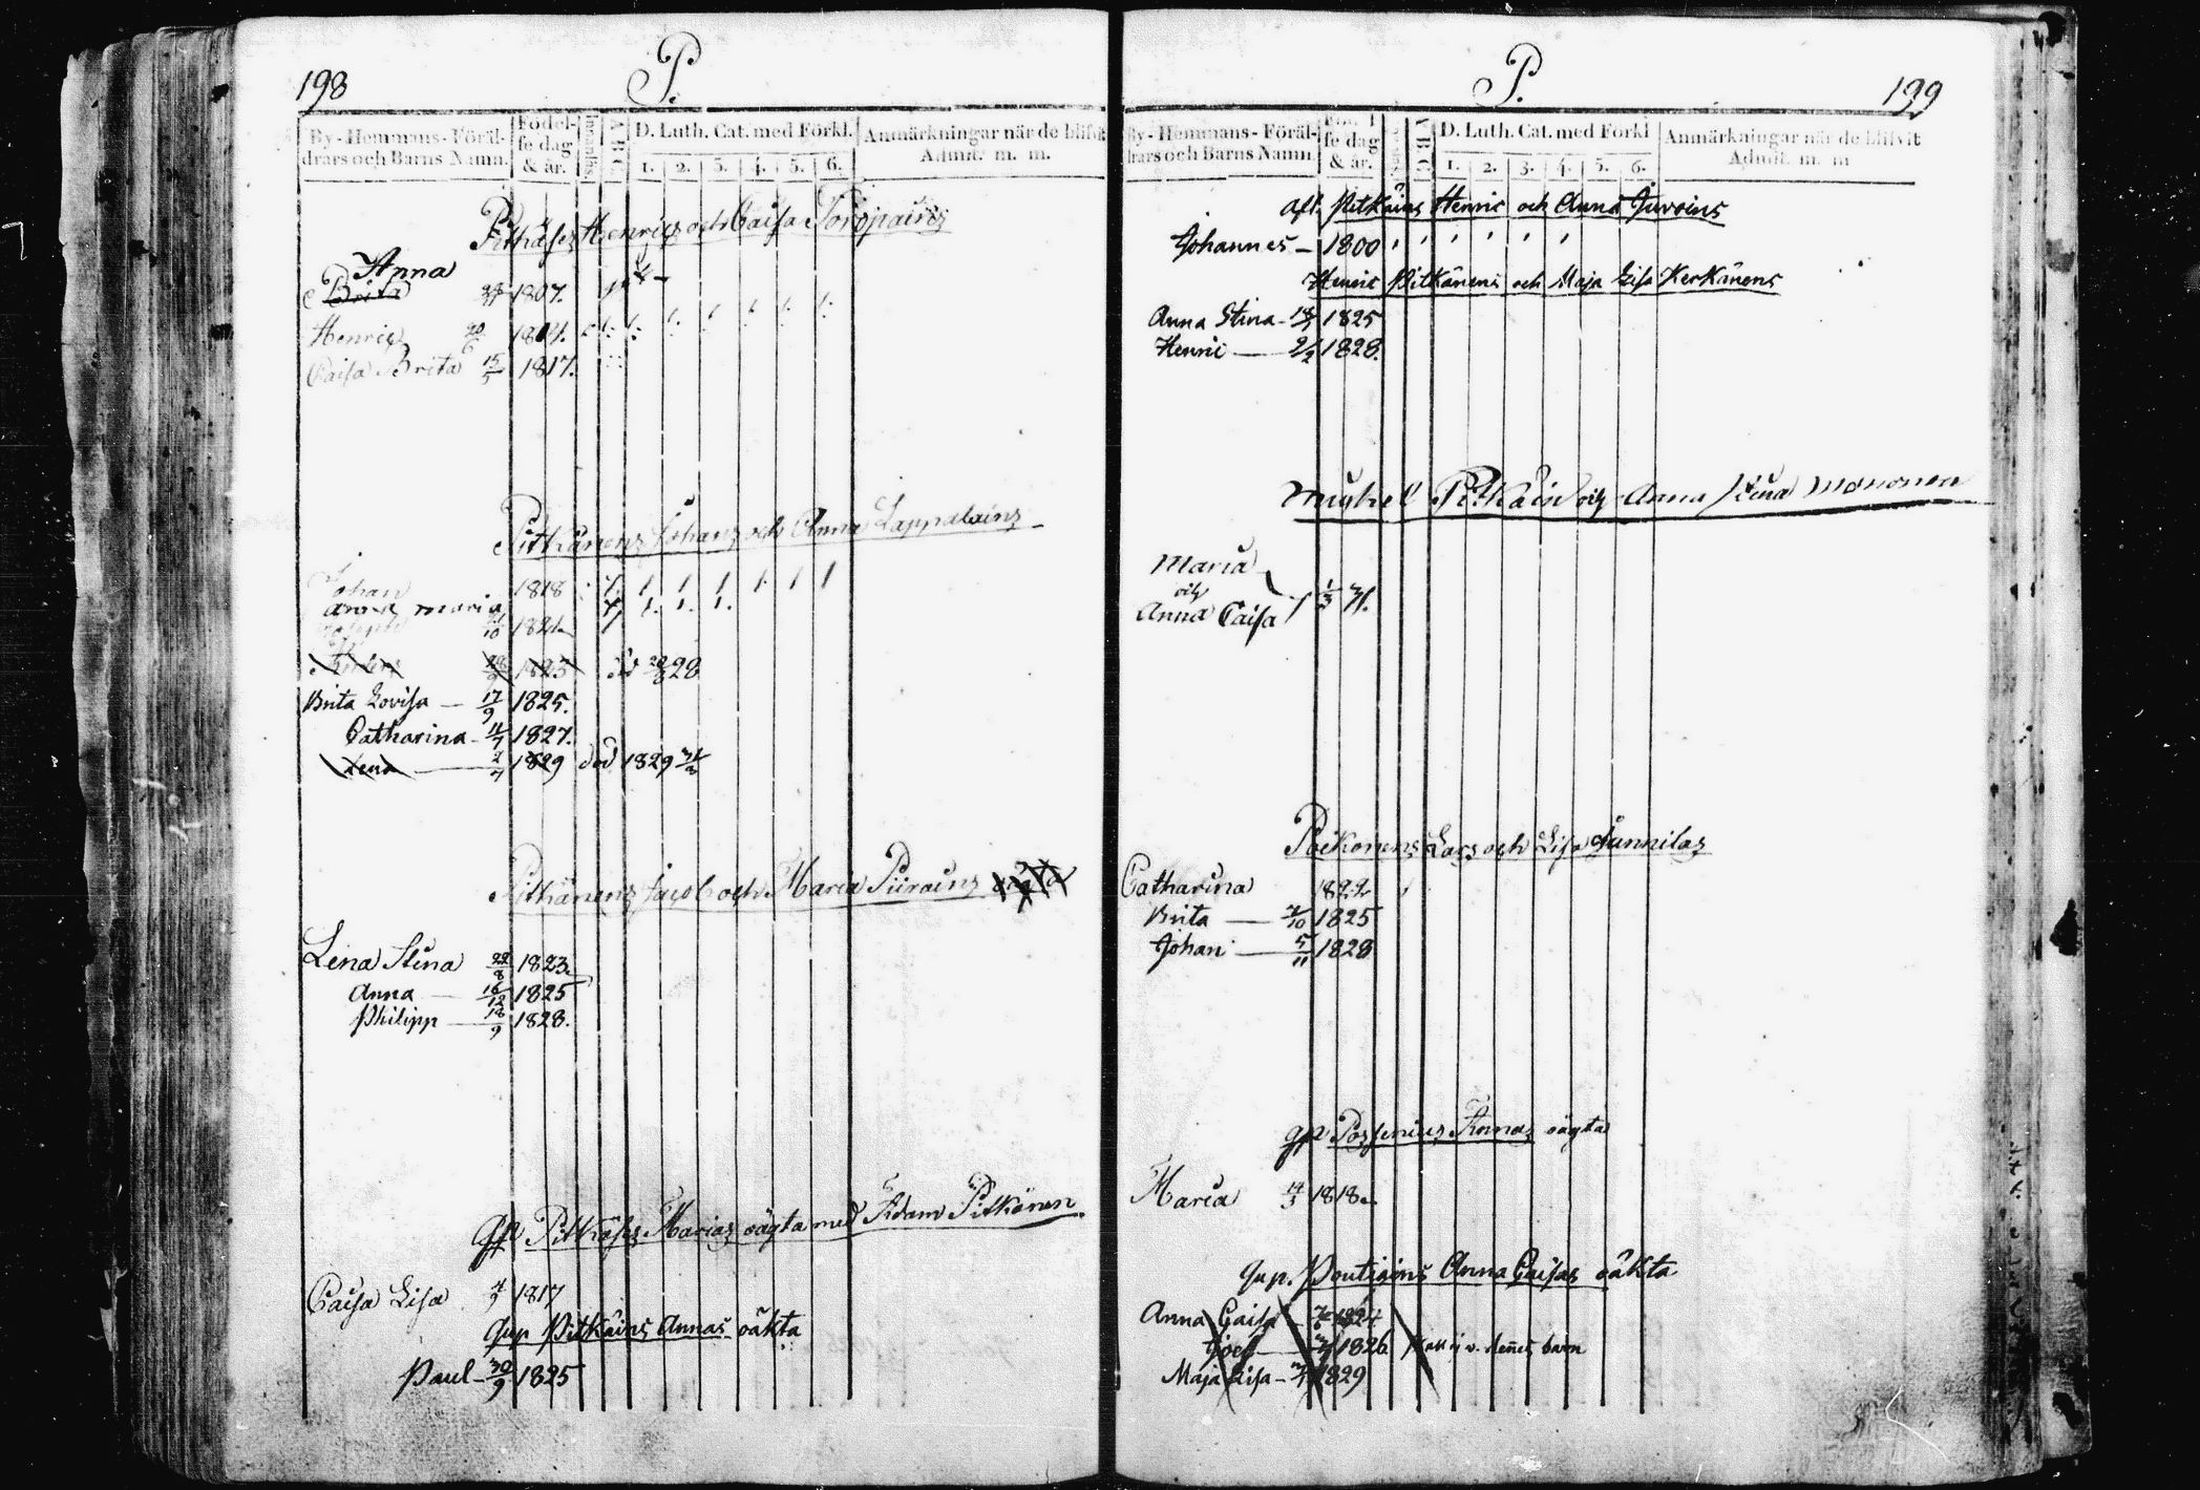 198
P.
By-Hemmans-Föräl-
drars och Barns Namn.
Födel-
se dag
& år.
Innanläs
A B C
D. Luth. Cat. med Förkl.
1. 2. 3. 4. 5. 6.
Anmärkningar när de blifvit
Admit. m. m.
Henrics och Caisa Toropaines
Anna
Brita 1807.
Henric 20/6 18
Caisa Brita 15/5 1817.
Pitkänens Johans och Anna Lappalains
Johan 1818
Anna Maria
1821
1823 död 28
Brita Lovisa — 17/9 1825.
Catharina - 11/7 1827.
Lena 2/7 1829 död 1829
Pitkänens Jacob och Maria Piirains
Lena Stina 22/8 1823.
Anna — 16/12 1825
Philipp — 18/9 1828.
Marias oägta med Adam Pitkänen
Caisa Lisa 4/9 1817
Qvp Pitkäins Annas oäkta
Paul - 30/9 1825
P.
199
By-Hemmans-Föräl-
drars och Barns Namn.
se dag
& år.
A B C
D. Luth. Cat. med Förkl
1. 2. 3. 4. 5. 6.
Anmärkningar när de blifvit
Admit. m. m
Pitkäins Henric och Anna Juvoins
Johannes - 1800
Henric Pitkänens och Maja Lisa Kerkänens
Anna Stina - 1825
Henric — 2/2 1828.
Michel Pitkäin och Anna Stina Mononen
Maria
och
Anna Caisa 1/3 31.
Poikonens Lars och Lisa Junnilas
Catharina 1822
Brita — 1825
Johan — 5/11 1828
Annas oägta
Maria 1818.
Qvp. Anna Caisas oäkta
Anna Caisa - 1824
Joel — 1826 barn
Maja Lisa - 1829